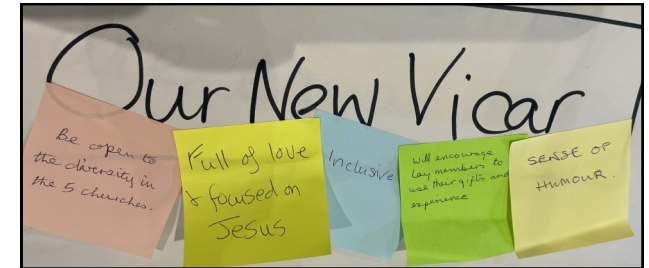 Our New Vicar
Be open to
the diversity in
the 5 churches.
Full of love
& focused on
Jesus
Inclusive
Will encourage
lay members to
use their gifts and
experience
SENSE OF
HUMOUR.